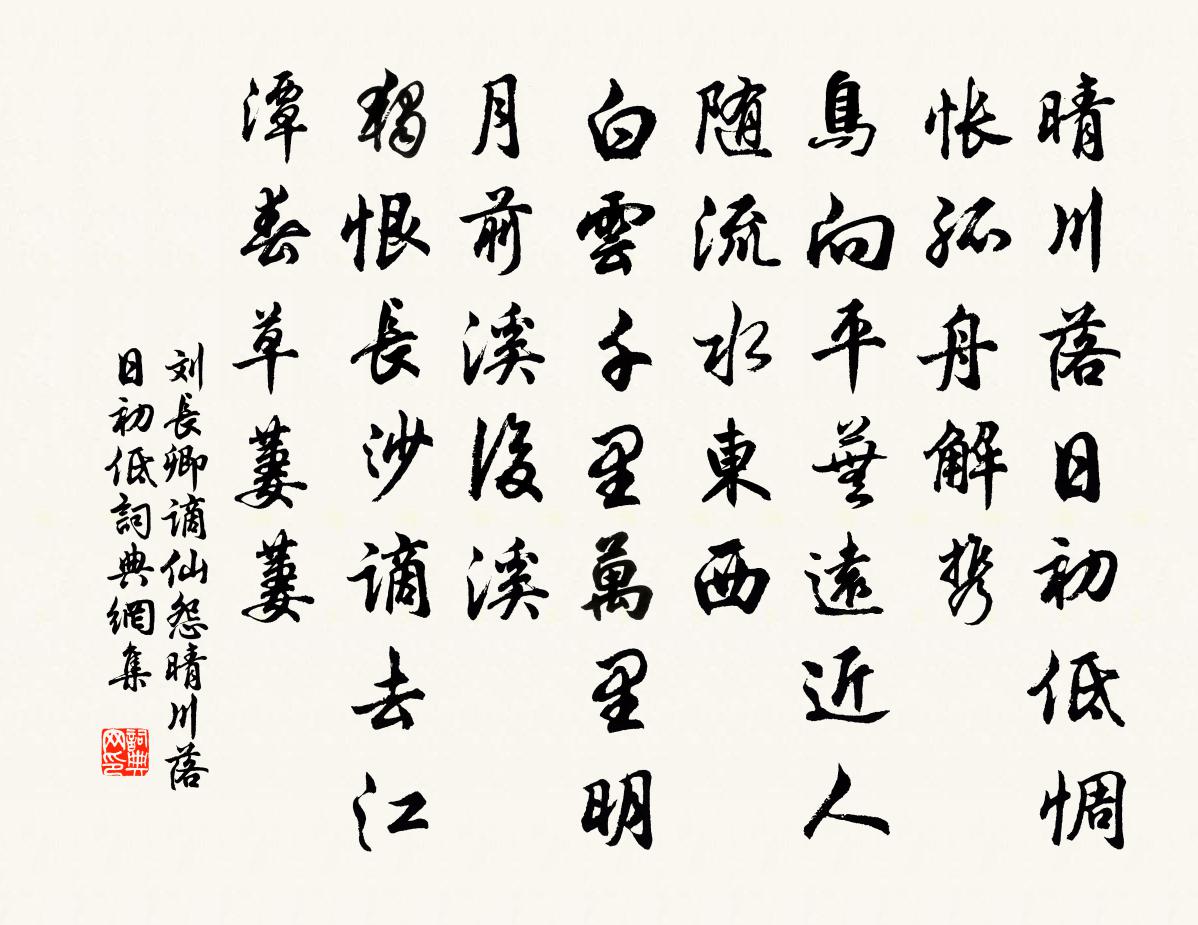 晴川落日初低惆
悵孤舟解携
鳥向平蕪遠近人
随流水東西
白雲千里萬里明
月前溪後溪
獨恨長沙謫去江
潭春草萋萋
刘長卿謫仙怨晴川落
日初低詞典網集
詞典网印